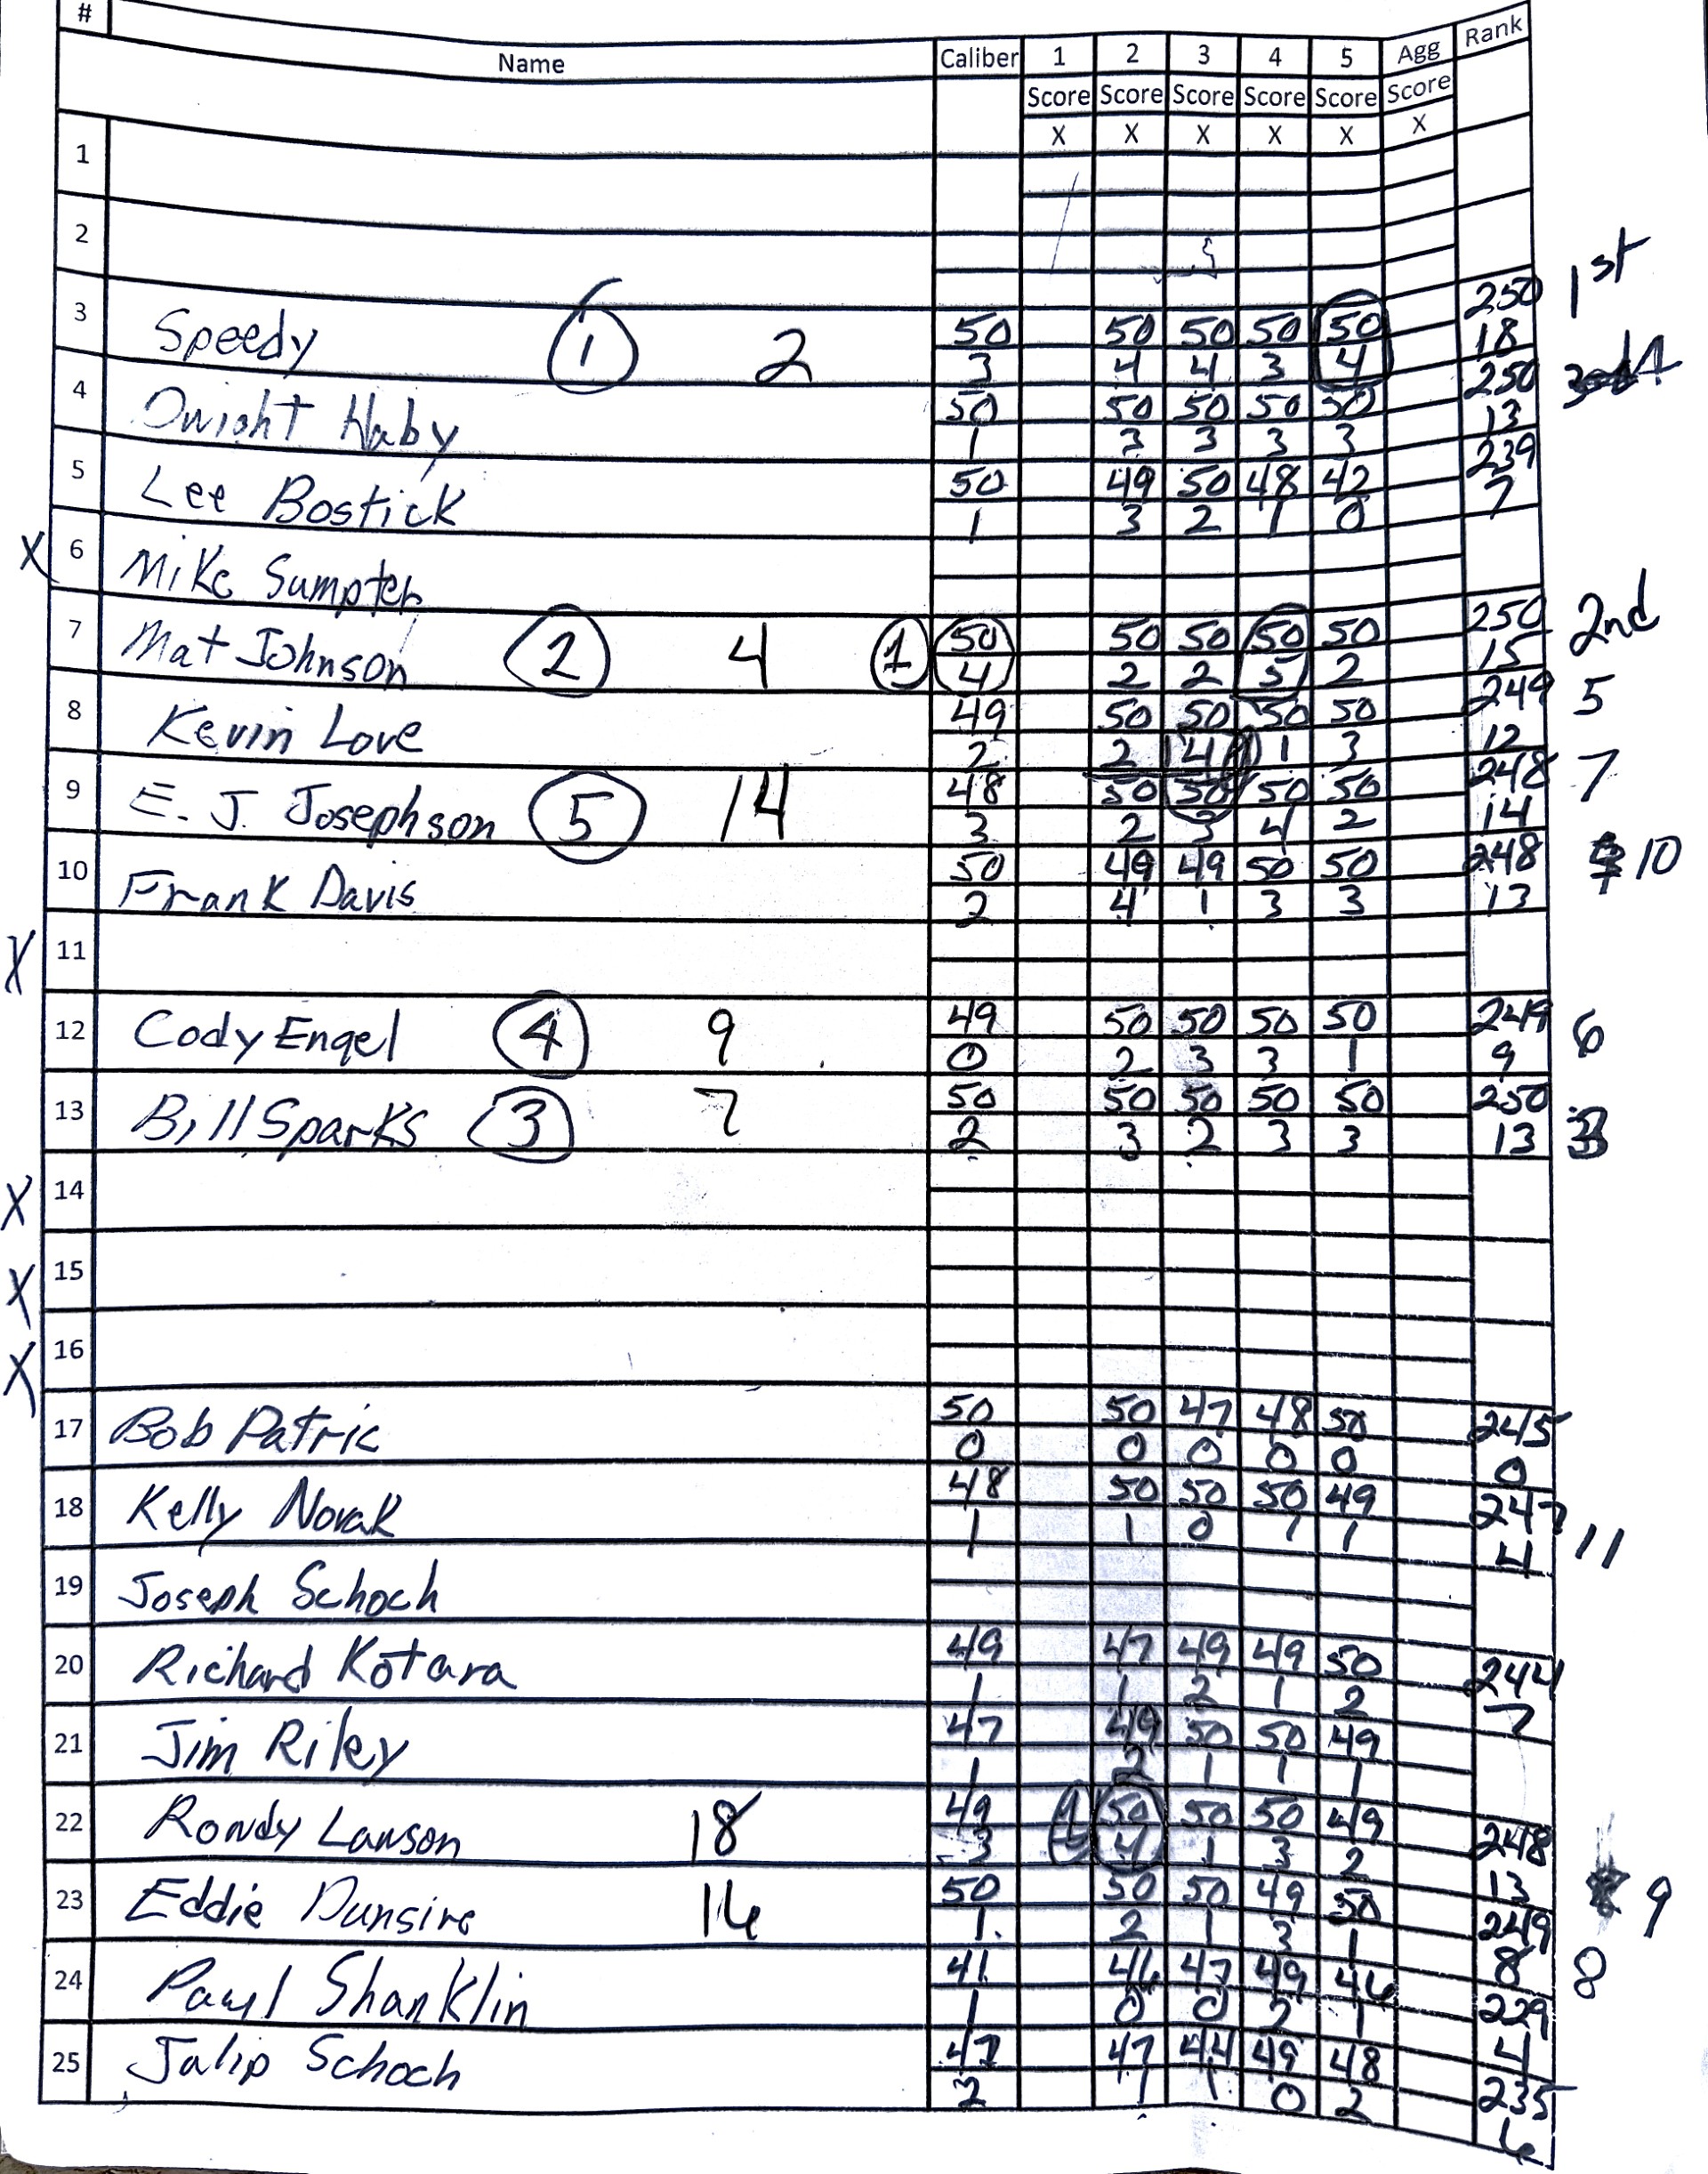 # Name Caliber 1 2 3 4 5 Agg Rank
Score Score Score Score Score Score
X X X X X X
1
2
1st
3 Speedy 1 2 50 50 50 50 50 250
3 4 4 3 4 18
4 Dwight Haby 50 50 50 50 50 250
1 3 3 3 3 13
5 Lee Bostick 50 49 50 48 42 239
1 3 2 1 0 7
X 6 Mike Sumpter
7 Mat Johnson 2 4 1 50 50 50 50 50 250 2nd
4 2 2 5 2 15
8 Kevin Love 49 50 50 50 50 249 5
2 2 4 1 3 12
9 E. J. Josephson 5 14 48 50 50 50 50 248 7
3 2 3 4 2 14
10 Frank Davis 50 49 49 50 50 248 10
2 4 1 3 3 13
X 11
12 Cody Engel 4 9 49 50 50 50 50 249 6
0 2 3 3 1 9
13 Bill Sparks 3 7 50 50 50 50 50 250 3
2 3 2 3 3 13
X 14
X 15
X 16
17 Bob Patric 50 50 47 48 50 245
0 0 0 0 0 0
18 Kelly Novak 48 50 50 50 49 247 11
1 1 0 1 1 4
19 Joseph Schoch
20 Richard Kotara 49 47 49 49 50 244
1 1 2 1 2 7
21 Jim Riley 47 49 50 50 49
1 2 1 1 1
22 Rondy Lawson 18 49 50 50 50 49 248
3 4 1 3 2 13 9
23 Eddie Dunsire 16 50 50 50 49 50 249
1 2 1 3 1 8 8
24 Paul Shanklin 41 46 47 49 46 229
1 0 0 2 1 4
25 Jalip Schoch 47 47 44 49 48 235
2 1 1 0 2 6